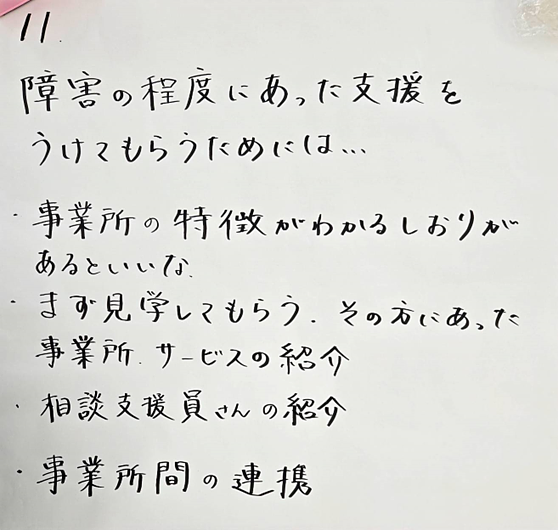 11.
障害の程度にあった支援を
うけてもらうためには…
・事業所の特徴がわかるしおりが
あるといいな.
・まず見学してもらう. その方にあった
事業所. サービスの紹介
・相談支援員さんの紹介
・事業所間の連携